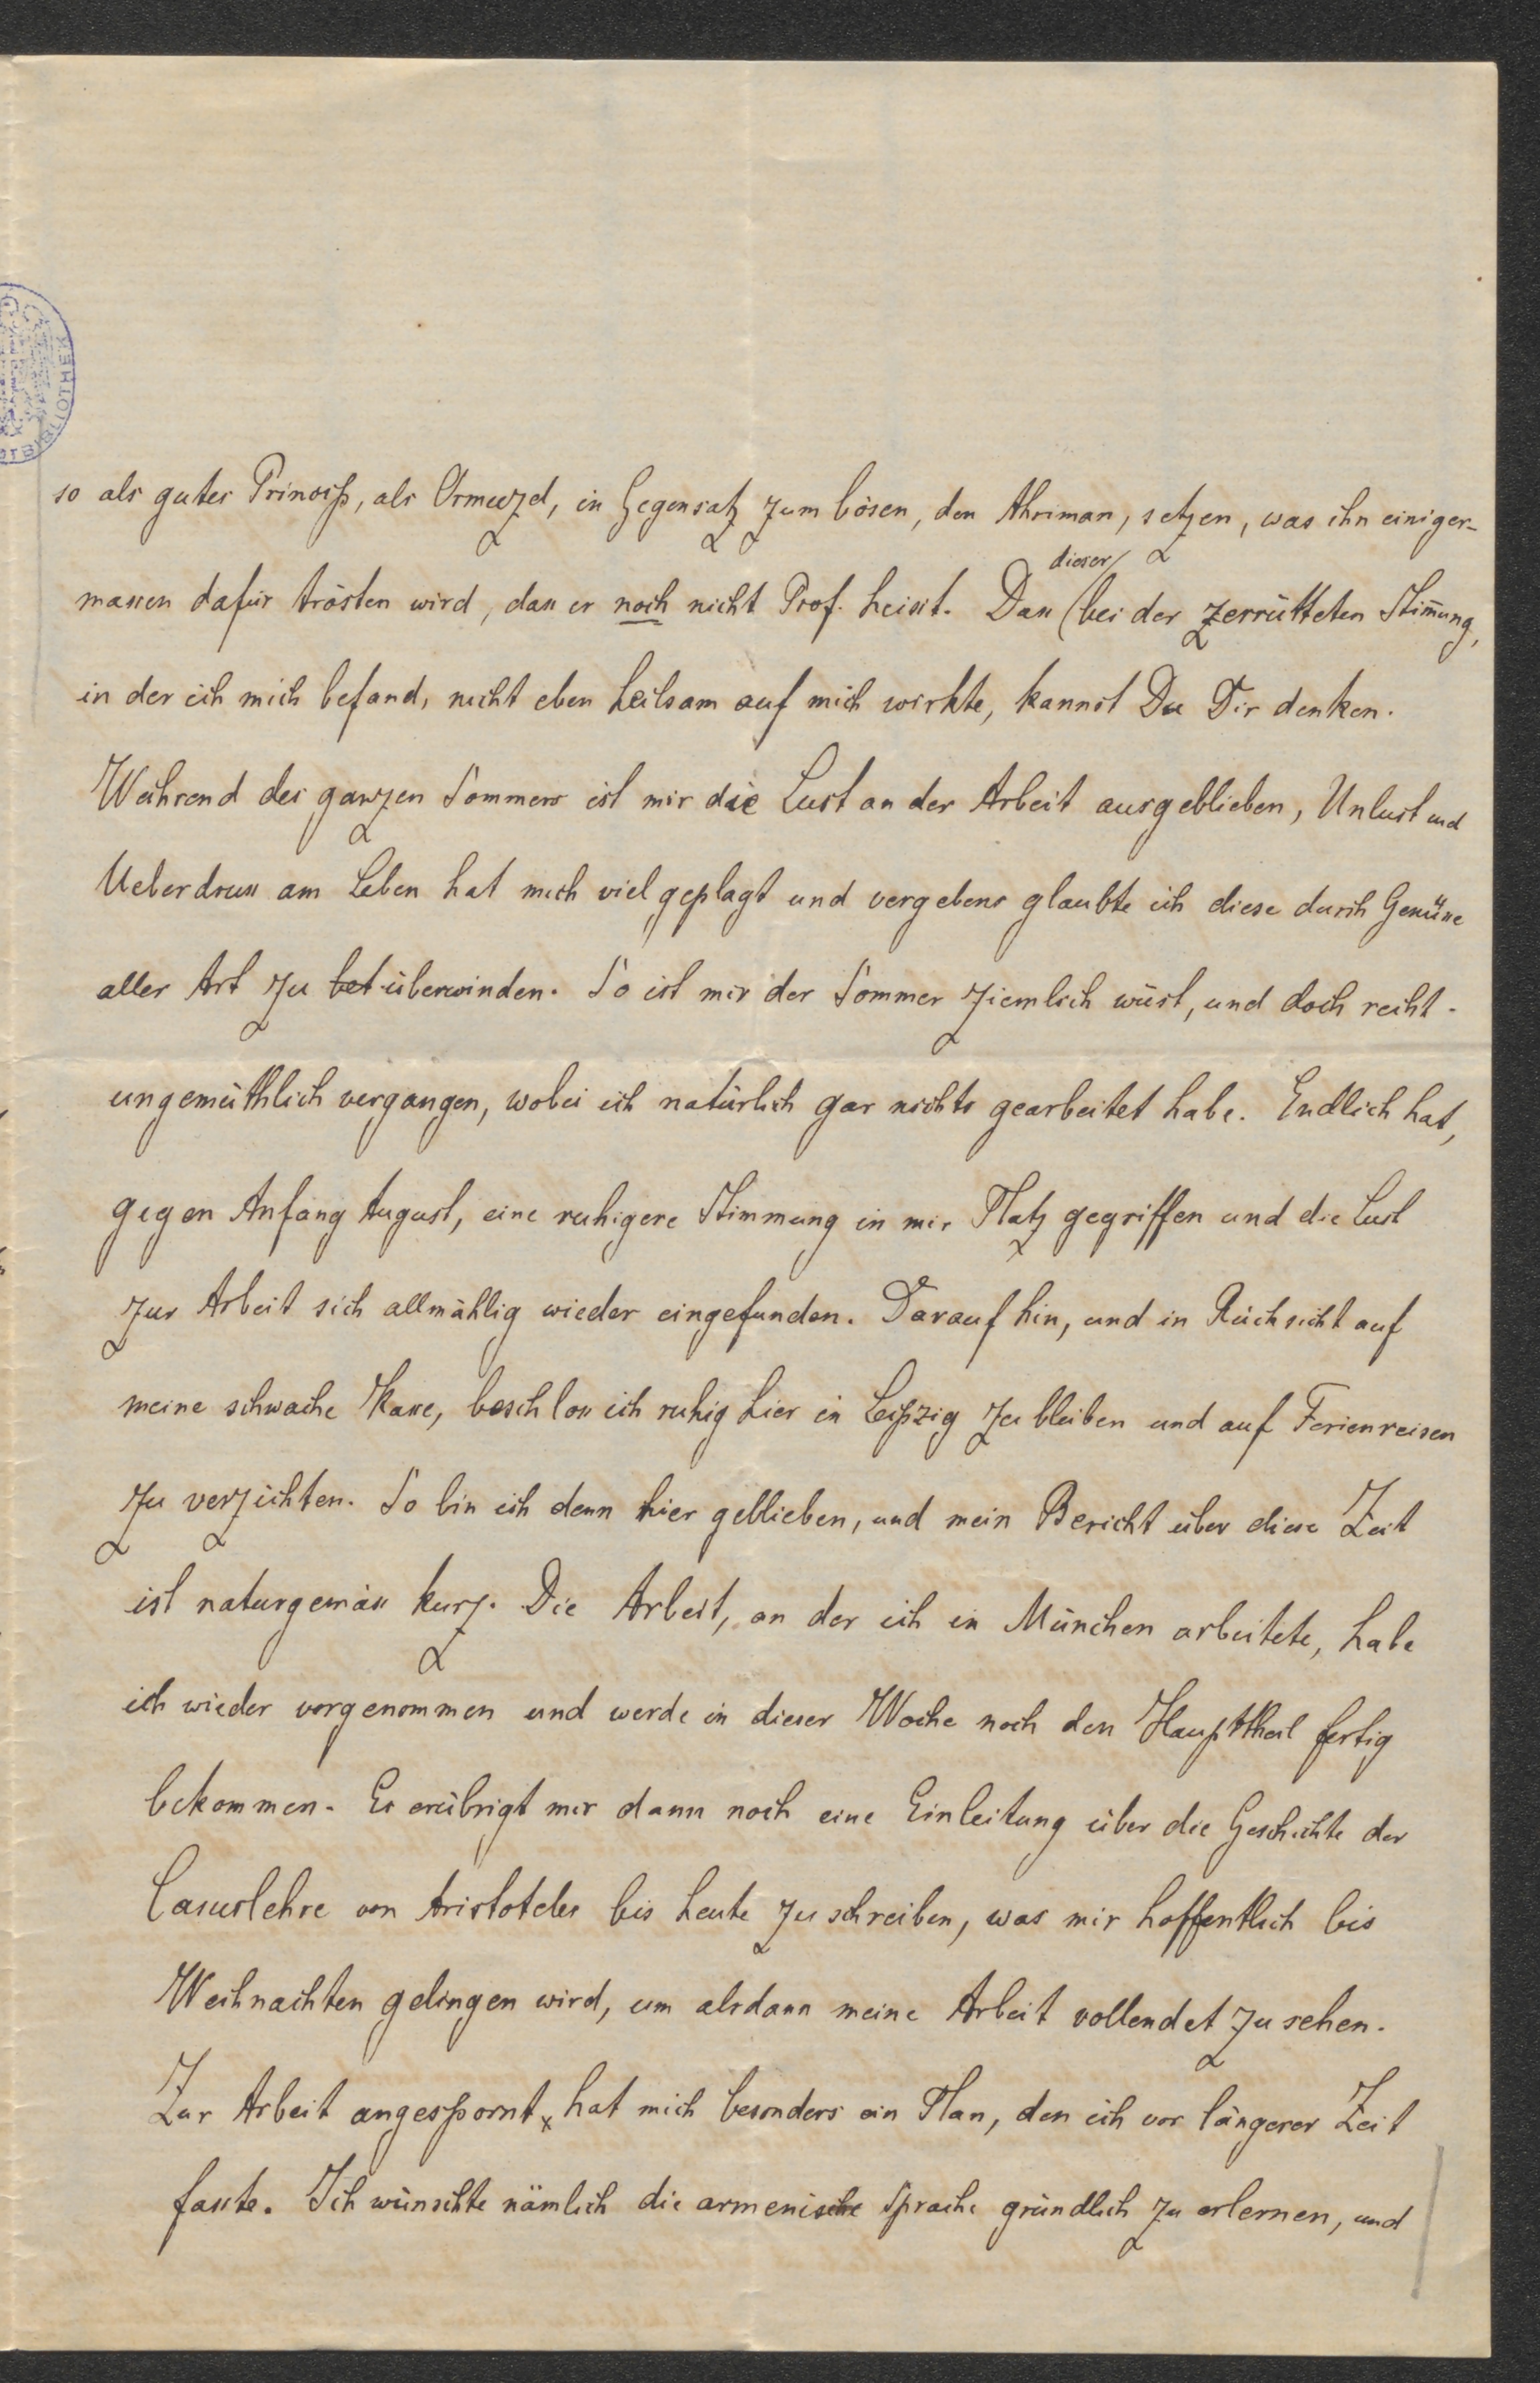 so als gutes Princip, als Ormuzd, in Gegensatz zum bösen, den Ahriman, setzen, was ihn einiger-
massen dafür trösten wird, dass er noch nicht Prof. heisst. Dass (dieser/ bei der zerrütteten Stim̄ung,
in der ich mich befand, nicht eben heilsam auf mich wirkte, kannst Du Dir denken.
Während des ganzen Sommers ist mir die Lust an der Arbeit ausgeblieben, Unlust und
Ueberdruss am Leben hat mich viel geplagt und vergebens glaubte ich diese durch Genüsse
aller Art zu bet überwinden. So ist mir der Sommer ziemlich wüst, und doch recht
ungemüthlich vergangen, wobei ich natürlich gar nichts gearbeitet habe. Endlich hat,
gegen Anfang August, eine ruhigere Stimmung in mir Platz gegriffen und die Lust
zur Arbeit sich allmählig wieder eingefunden. Darauf hin, und in Rücksicht auf
meine schwache Kasse, beschloss ich ruhig hier in Leipzig zu bleiben und auf Ferienreisen
zu verzichten. So bin ich denn hier geblieben, und mein Bericht über diese Zeit
ist naturgemäss kurz. Die Arbeit, an der ich in München arbeitete, habe
ich wieder vorgenommen und werde in dieser Woche noch den Haupttheil fertig
bekommen. Es erübrigt mir dann noch eine Einleitung über die Geschichte der
Casuslehre von Aristoteles bis heute zu schreiben, was mir hoffentlich bis
Weihnachten gelingen wird, um alsdann meine Arbeit vollendet zu sehen.
Zur Arbeit angespornt hat mich besonders ein Plan, den ich vor längerer Zeit
fasste. Ich wünschte nämlich die armenische Sprache gründlich zu erlernen, und